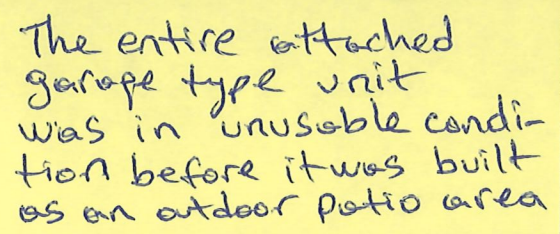 The entire attached
garage type unit
was in unusable condi-
tion before it was built
as an outdoor patio area